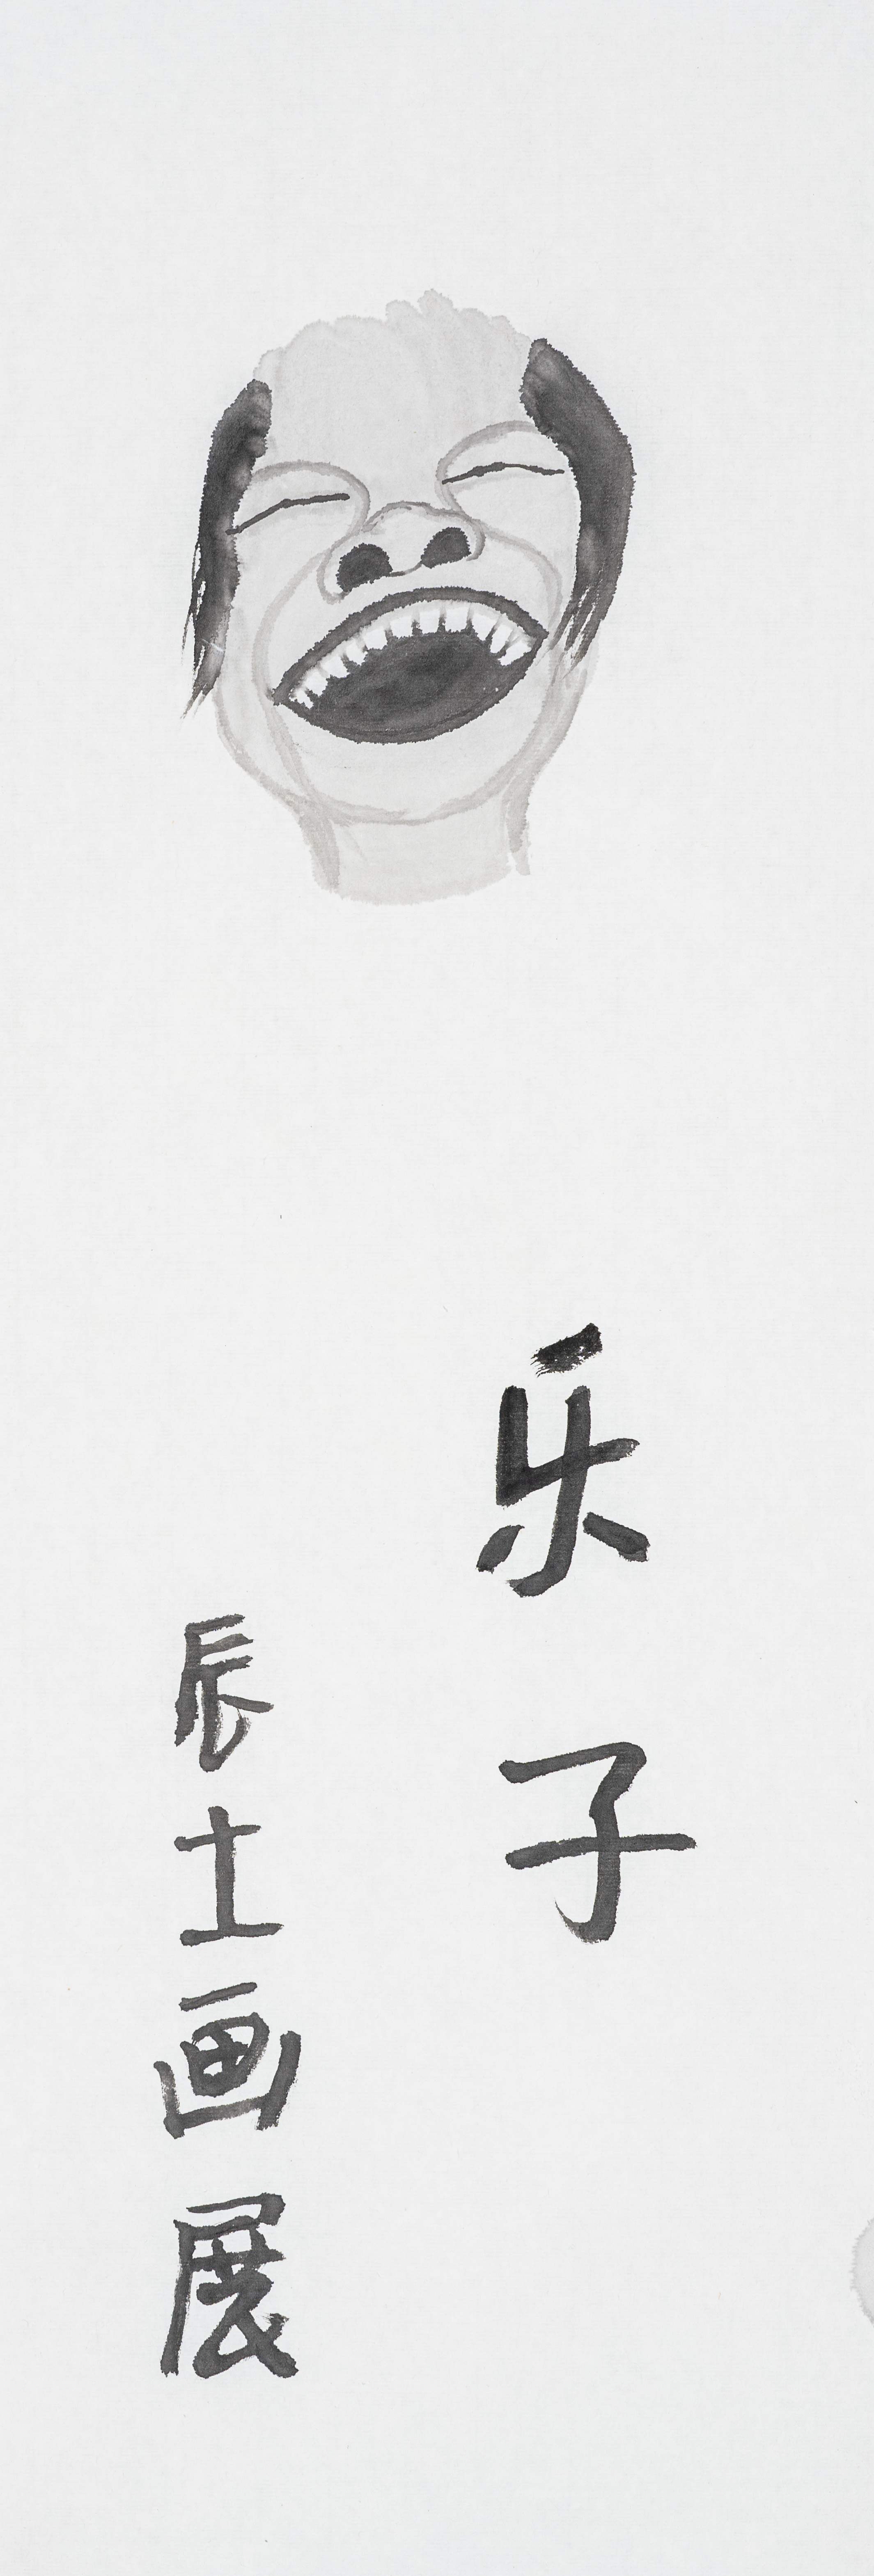 乐子
辰士画展